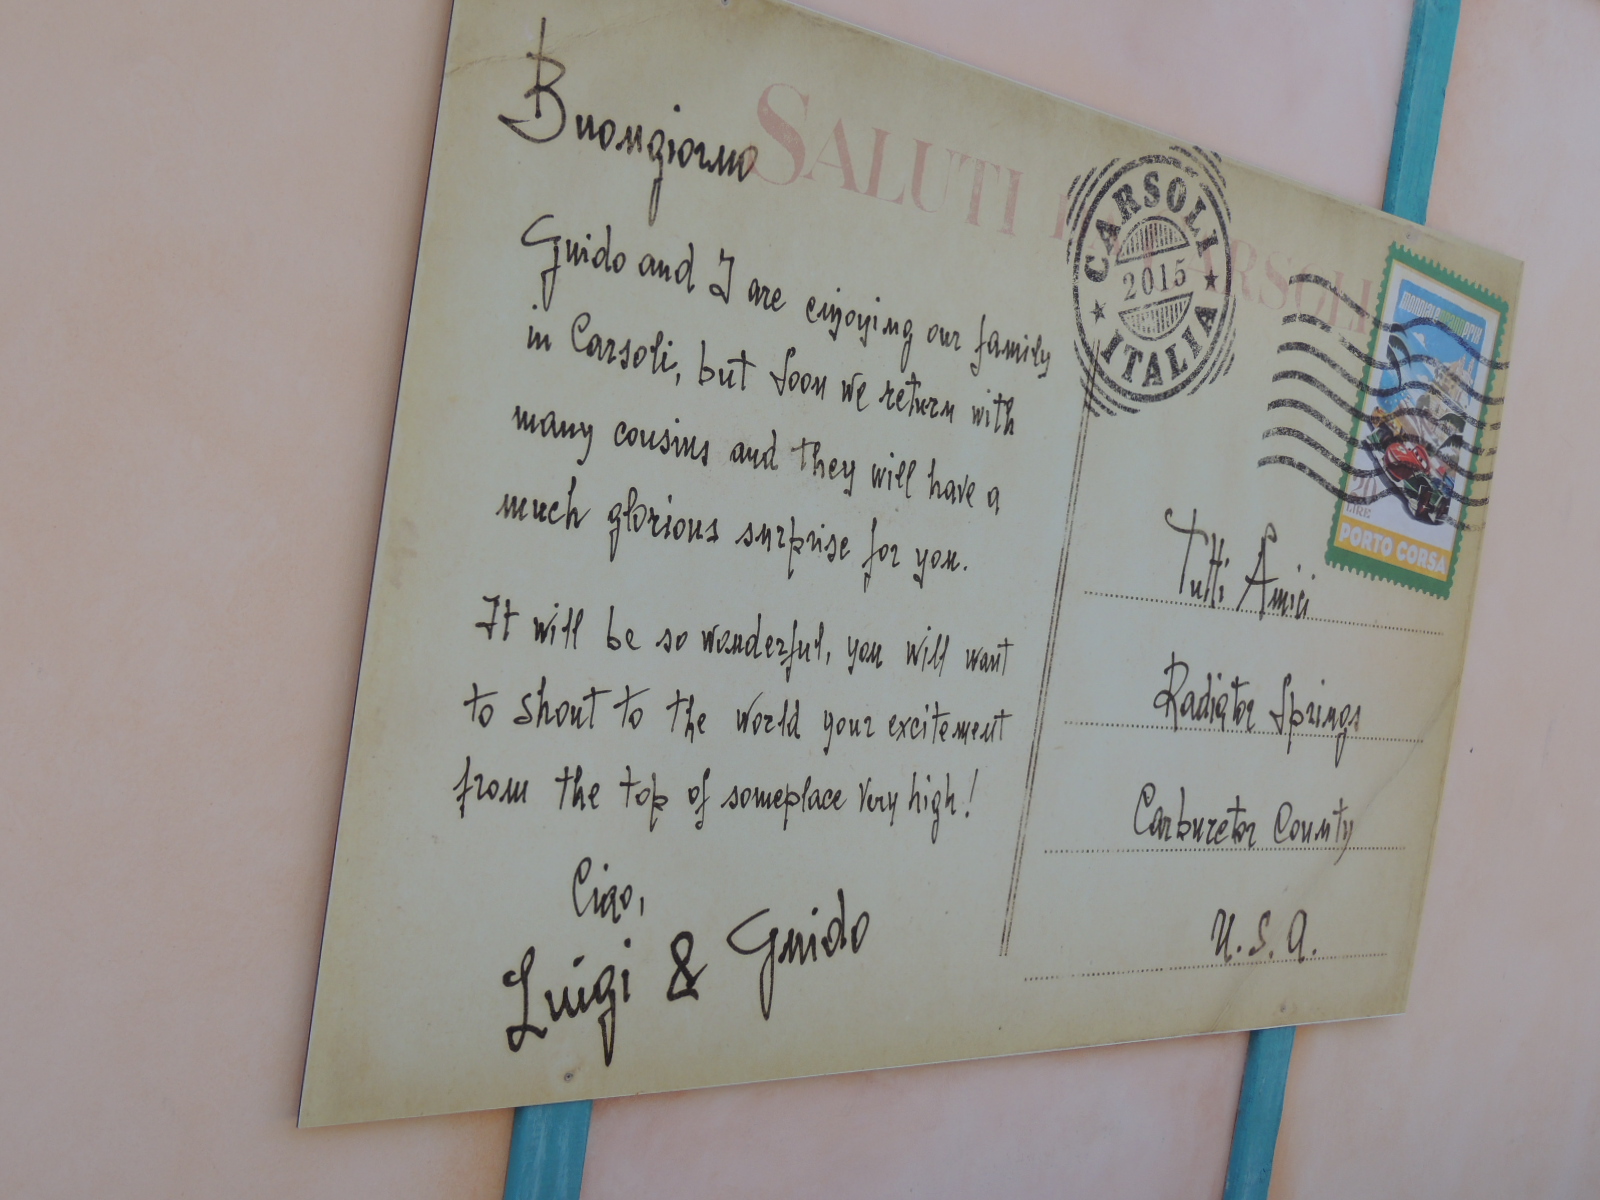 Buongiorno
SALUTI DA CARSOLI
Guido and I are enjoying our family
in Carsoli, but soon we return with
many cousins and they will have a
much glorious surprise for you.
It will be so wonderful, you will want
to shout to the world your excitement
from the top of someplace very high!
Ciao,
Luigi & Guido
CARSOLI
2015
ITALIA
MONDIALE GRAND PRIX
LIRE
PORTO CORSA
Tutti Amici
Radiator Springs
Carburetor County
U.S.A.